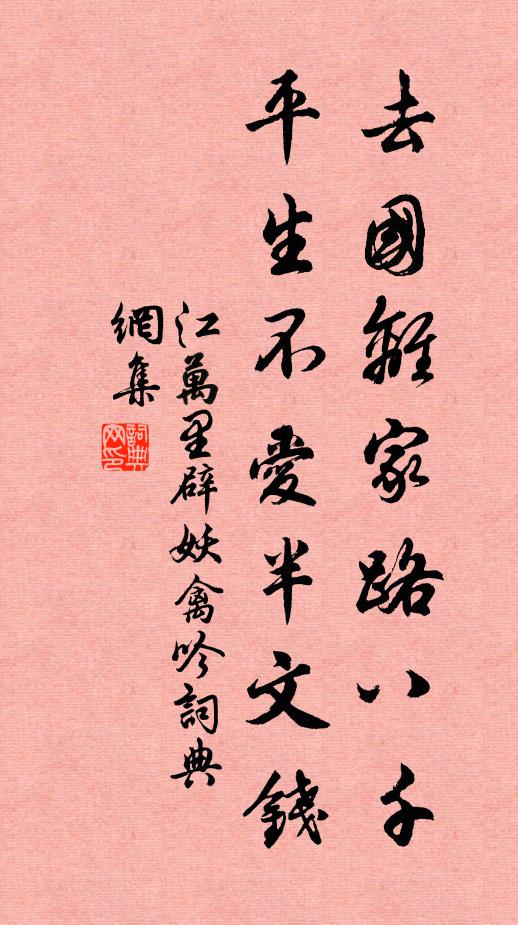 去國離家路八千
平生不愛半文錢
江萬里辟妖禽吟詞典
網集
詞典
網印